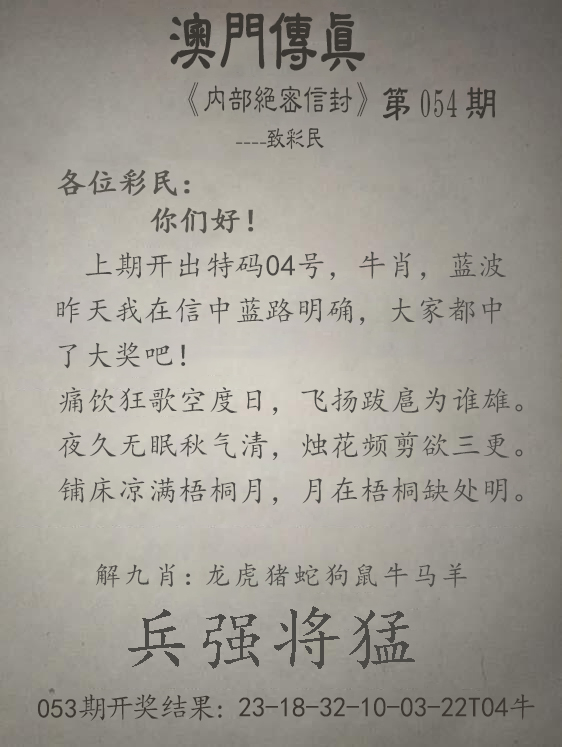 澳門傳眞
《内部絕密信封》第054期
----致彩民
各位彩民：
你们好！
上期开出特码04号，牛肖，蓝波
昨天我在信中蓝路明确，大家都中
了大奖吧！
痛饮狂歌空度日，飞扬跋扈为谁雄。
夜久无眠秋气清，烛花频剪欲三更。
铺床凉满梧桐月，月在梧桐缺处明。
解九肖：龙虎猪蛇狗鼠牛马羊
兵强将猛
053期开奖结果：23-18-32-10-03-22T04牛